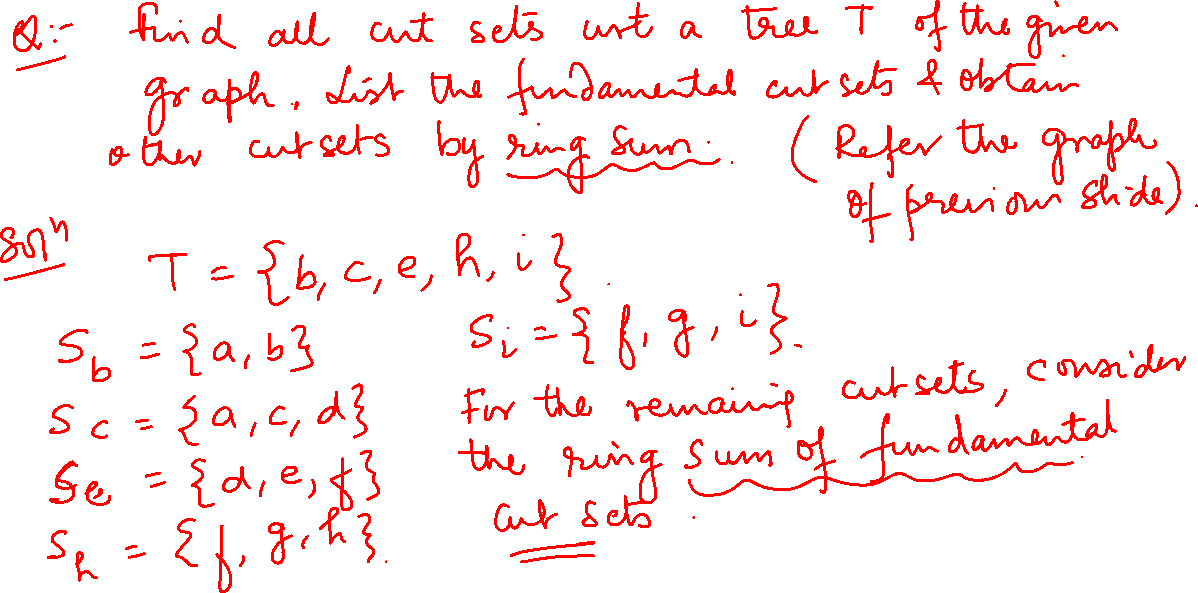 Q:- Find all cut sets wrt a tree T of the given
graph. List the fundamental cut sets & obtain
other cut sets by ring sum. (Refer the graph
of previous slide).
Solⁿ
T = {b, c, e, h, i}.
S_b = {a, b}
S_c = {a, c, d}
S_e = {d, e, f}
S_h = {f, g, h}.
S_i = {f, g, i}.
For the remaining cut sets, consider
the ring sum of fundamental
cut sets.